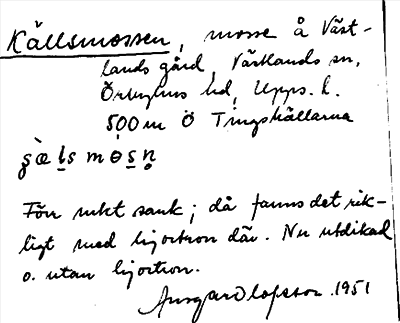 Källsmossen, mosse å Väst-
lands gård, Västlands sn,
Örbyhus hd, Upps. l.
500 m Ö Tingskällarna

Förr mkt sank; då fanns det rik-
ligt med hjortron där. Nu utdikad
o. utan hjortron.
Ansgar Olofsson. 1951